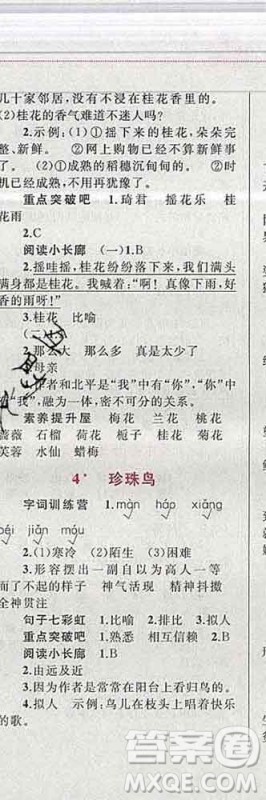 几十家邻居,没有不浸在桂花香里的。
(2)桂花的香气难道不迷人吗?
2.示例:(1)①摇下来的桂花,朵朵完
整、新鲜。 ②网上购物已经不算新鲜事
了。 (2)①成熟的稻穗沉甸甸的。 ②时
机已经成熟,不用再犹豫了。
重点突破吧 1.琦君 摇花乐 桂
花雨
2.C
阅读小长廊 (一)1.B
2.摇哇摇,桂花纷纷落下来,我们满头
满身都是桂花。我喊着:“啊!真像下雨,好
香的雨呀!”
3.桂花 比喻
(二)
2.那么大 那么多 真是太少了
母亲
作者和北平是“我”中有“你”,“你”中
有“我”,融为一体,密不可分的关系。
素养提升屋 梅花 兰花 桃花
蔷薇 石榴 荷花 栀子 桂花 菊花
芙蓉 水仙 蜡梅
4* 珍珠鸟
字词训练营 1.màn háp xiǎng
béi jiǎn máo
2.(1)寒冷 (2)陌生 (3)困难
3.形容摆脱一切而自由自在或者高
了不起的样子 神气活现 精神抖擞
全神贯注
句子七彩虹 1.比喻 2.排比 3.拟人
重点突破吧 1.熟悉 相互信赖 2.B
阅读小长廊 1.B
2.由远及近
3.因为作者常常在阳台上看归鸟。
4.拟人 示例:鸟儿在枝头上唱着快乐
的歌。
答案圈
MXQE.COM